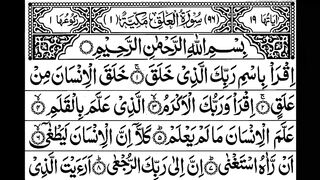 اٰیَاتُهَا ۱۹ (۹۶) سُوْرَةُ الْعَلَقِ مَكِّيَّةٌ (۱) رُكُوْعُهَا ۱
بِسْمِ اللّٰهِ الرَّحْمٰنِ الرَّحِيْمِ
اِقْرَاْ بِاسْمِ رَبِّكَ الَّذِیْ خَلَقَ ۚ۱ خَلَقَ الْاِنْسَانَ مِنْ
عَلَقٍ ۚ۲ اِقْرَاْ وَرَبُّكَ الْاَكْرَمُ ۙ۳ الَّذِیْ عَلَّمَ بِالْقَلَمِ ۙ۴
عَلَّمَ الْاِنْسَانَ مَا لَمْ یَعْلَمْ ؕ۵ كَلَّاۤ اِنَّ الْاِنْسَانَ لَیَطْغٰۤی ۙ۶
اَنْ رَّاٰهُ اسْتَغْنٰی ؕ۷ اِنَّ اِلٰی رَبِّكَ الرُّجْعٰی ؕ۸ اَرَءَیْتَ الَّذِیْ